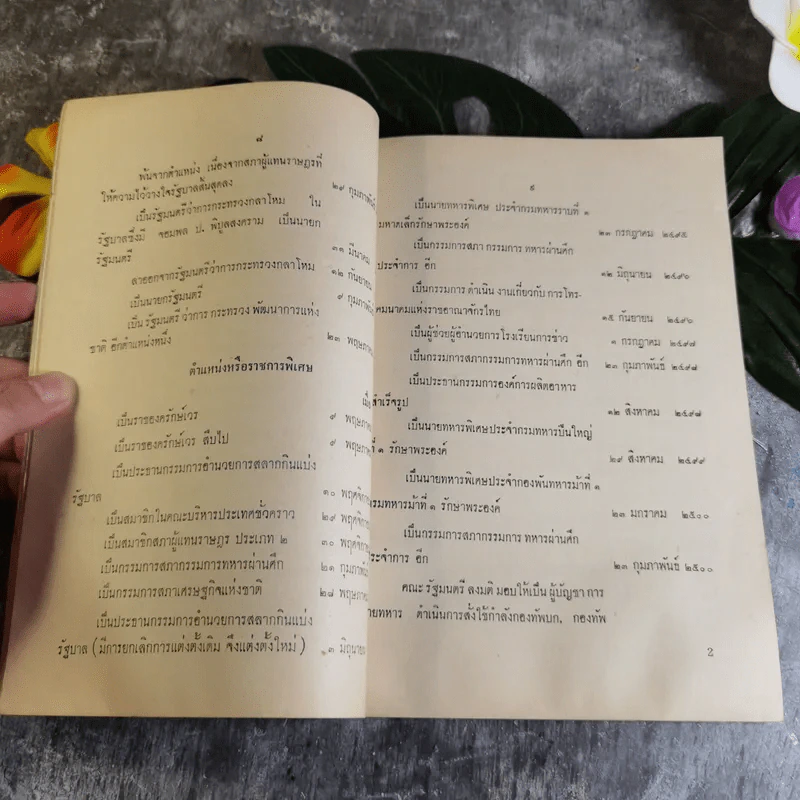 ๘
พ้นจากตำแหน่ง เนื่องจากสภาผู้แทนราษฎรที่
ให้ความไว้วางใจรัฐบาลสิ้นสุดลง ๒๙ กุมภาพันธ์
เป็นรัฐมนตรีว่าการกระทรวงกลาโหม ใน
รัฐบาลซึ่งมี จอมพล ป. พิบูลสงคราม เป็นนายก
รัฐมนตรี ๓๑ มีนาคม
ลาออกจากรัฐมนตรีว่าการกระทรวงกลาโหม ๑๒ กันยายน
เป็นนายกรัฐมนตรี ๙ กุมภาพั
เป็น รัฐมนตรี ว่าการ กระทรวง พัฒนาการแห่ง
ชาติ อีกตำแหน่งหนึ่ง ๒๓ พฤษภา
ตำแหน่งหรือราชการพิเศษ
เป็นราชองครักษ์เวร ๙ พฤษภา
เป็นราชองครักษ์เวร สืบไป ๙ พฤษภา
เป็นประธานกรรมการอำนวยการสลากกินแบ่ง
รัฐบาล ๓๐ พฤศจิกา
เป็นสมาชิกในคณะบริหารประเทศชั่วคราว ๒๙ พฤศจิก
เป็นสมาชิกสภาผู้แทนราษฎร ประเภท ๒ ๓๐ พฤศจิกา
เป็นกรรมการสภากรรมการทหารผ่านศึก ๒๑ กุมภาพัน
เป็นกรรมการสภาเศรษฐกิจแห่งชาติ ๒๘ พฤษภา
เป็นประธานกรรมการอำนวยการสลากกินแบ่ง
รัฐบาล (มีการยกเลิกการแต่งตั้งเดิม จึงแต่งตั้งใหม่) ๓ มิถุนายน
๙
เป็นนายทหารพิเศษ ประจำกรมทหารราบที่ ๑
มหาดเล็กรักษาพระองค์ ๒๓ กรกฎาคม ๒๔๙๕
เป็นกรรมการสภา กรรมการ ทหารผ่านศึก
ประจำการ อีก ๑๒ มิถุนายน ๒๔๙๖
เป็นกรรมการ ดำเนิน งานเกี่ยวกับ การโทร-
คมนาคมแห่งราชอาณาจักรไทย ๑๕ กันยายน ๒๔๙๖
เป็นผู้ช่วยผู้อำนวยการโรงเรียนการข่าว ๑ กรกฎาคม ๒๔๙๗
เป็นกรรมการสภากรรมการทหารผ่านศึก อีก ๒๓ กุมภาพันธ์ ๒๔๙๘
เป็นประธานกรรมการองค์การผลิตอาหาร
สำเร็จรูป ๑๒ สิงหาคม ๒๔๙๘
เป็นนายทหารพิเศษประจำกรมทหารปืนใหญ่
ที่ ๑ รักษาพระองค์ ๒๙ สิงหาคม ๒๔๙๙
เป็นนายทหารพิเศษประจำกองพันทหารม้าที่ ๑
รมทหารม้าที่ ๑ รักษาพระองค์ ๒๓ มกราคม ๒๕๐๐
เป็นกรรมการสภากรรมการ ทหารผ่านศึก
ประจำการ อีก ๒๓ กุมภาพันธ์ ๒๕๐๐
คณะ รัฐมนตรี ลงมติ มอบให้เป็น ผู้บัญชา การ
ายทหาร ดำเนินการสั่งใช้กำลังกองทัพบก, กองทัพ
2